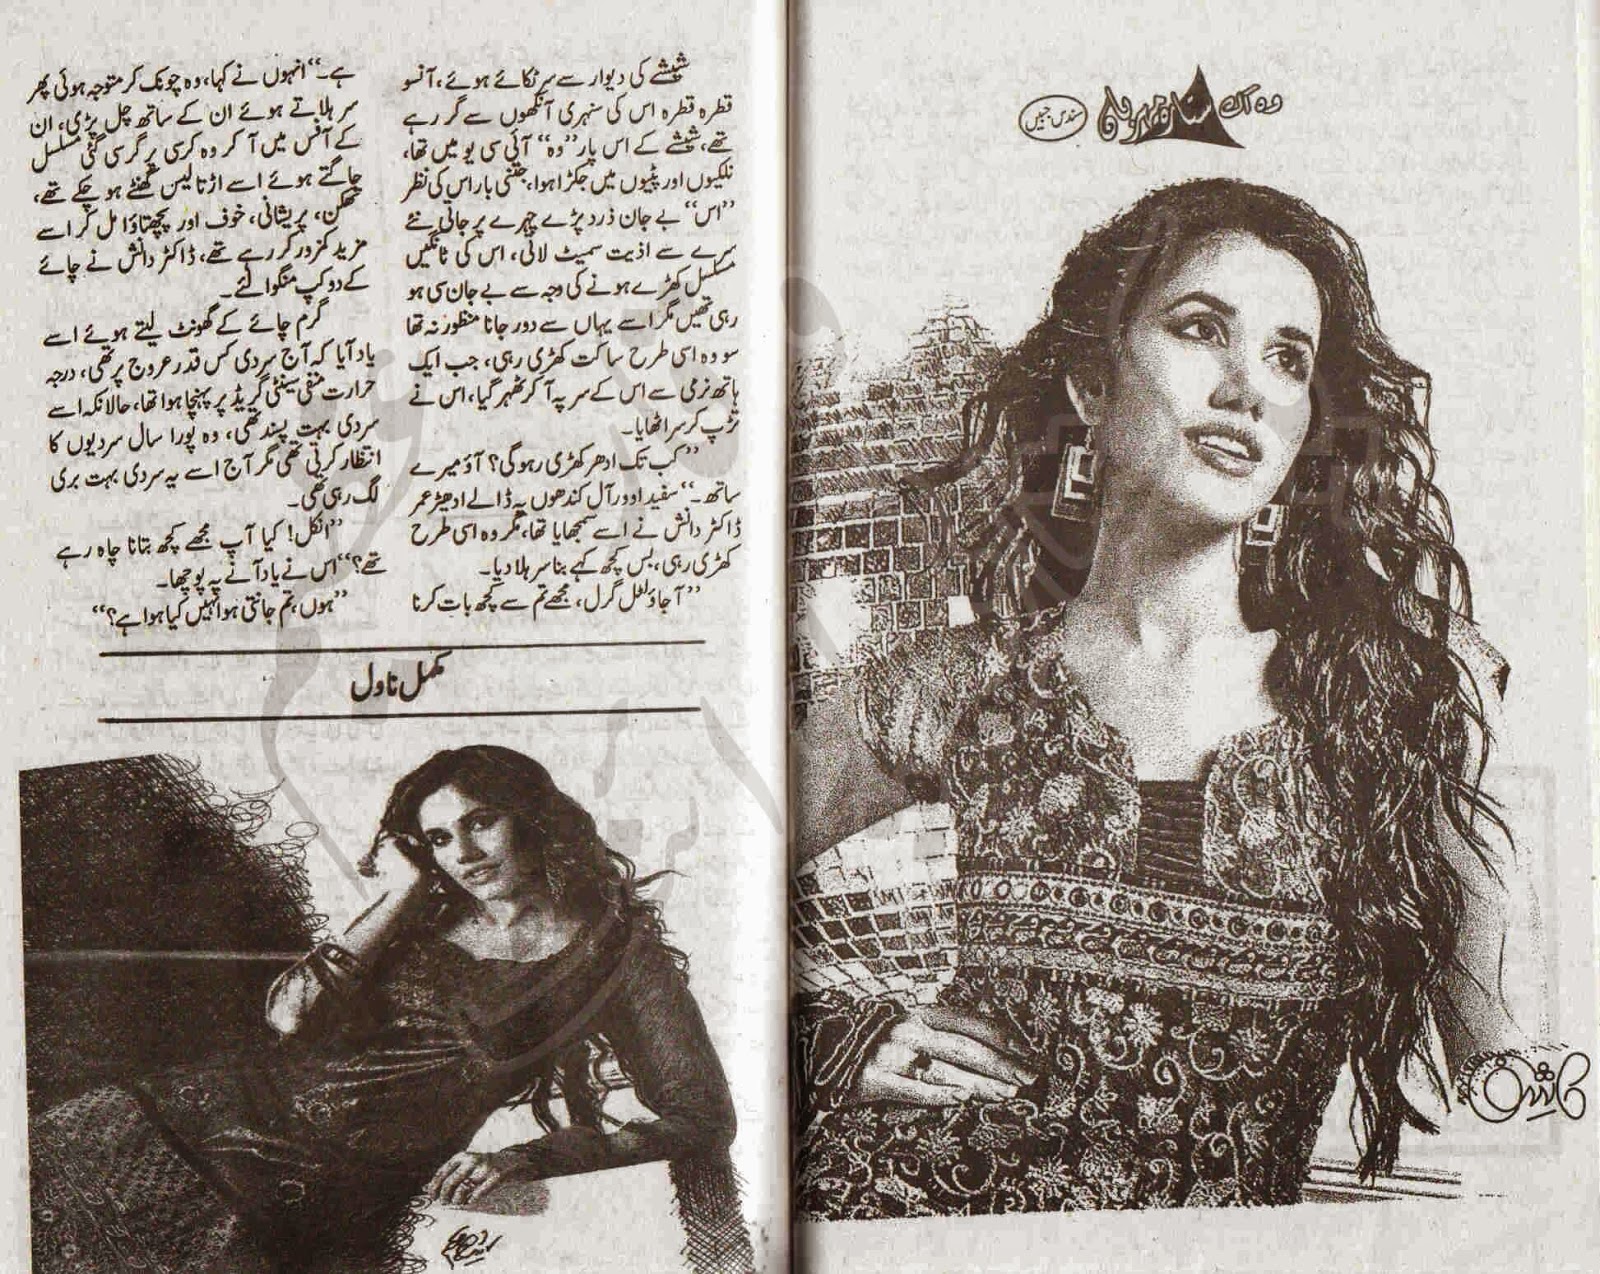 وہ اک ستارہ مہرباں
سندس جبیں
شیشے کی دیوار سے سر ٹکائے ہوئے، آنسو
قطرہ قطرہ اس کی سنہری آنکھوں سے گر رہے
تھے، شیشے کے اس پار ”وہ“ آئی سی یو میں تھا،
نلکیوں اور پٹیوں میں جکڑا ہوا، جتنی بار اس کی نظر
”اس“ بے جان زرد پڑے چہرے پر جاتی نئے
سرے سے اذیت سمیٹ لاتی، اس کی ٹانگیں
مسلسل کھڑے ہونے کی وجہ سے بے جان سی ہو
رہی تھیں مگر اسے یہاں سے دور جانا منظور نہ تھا
سو وہ اسی طرح ساکت کھڑی رہی، جب ایک
ہاتھ نرمی سے اس کے سر پہ آ کر ٹھہر گیا، اس نے
تڑپ کر سر اٹھایا۔
”کب تک ادھر کھڑی رہو گی؟ آؤ میرے
ساتھ۔“ سفید اوور آل کندھوں پہ ڈالے ادھیڑ عمر
ڈاکٹر دانش نے اسے سمجھایا تھا، مگر وہ اسی طرح
کھڑی رہی، بس کچھ کہے بنا سر ہلا دیا۔
”آ جاؤ لٹل گرل، مجھے تم سے کچھ بات کرنا
ہے۔“ انہوں نے کہا، وہ چونک کر متوجہ ہوئی پھر
سر ہلاتے ہوئے ان کے ساتھ چل پڑی، ان
کے آفس میں آ کر وہ کرسی پر گر سی گئی مسلسل
جاگتے ہوئے اسے اڑتالیس گھنٹے ہو چکے تھے،
تھکن، پریشانی، خوف اور پچھتاوا مل کر اسے
مزید کمزور کر رہے تھے، ڈاکٹر دانش نے چائے
کے دو کپ منگوائے۔
گرم چائے کے گھونٹ لیتے ہوئے اسے
یاد آیا کہ آج سردی کس قدر عروج پر تھی، درجہ
حرارت منفی سینٹی گریڈ پر پہنچا ہوا تھا، حالانکہ اسے
سردی بہت پسند تھی، وہ پورا سال سردیوں کا
انتظار کرتی تھی مگر آج اسے یہ سردی بہت بری
لگ رہی تھی۔
”انکل! کیا آپ مجھے کچھ بتانا چاہ رہے
تھے؟“ اس نے یاد آنے پہ پوچھا۔
”ہوں، تم جانتی ہو انہیں کیا ہوا ہے؟“
مکمل ناول